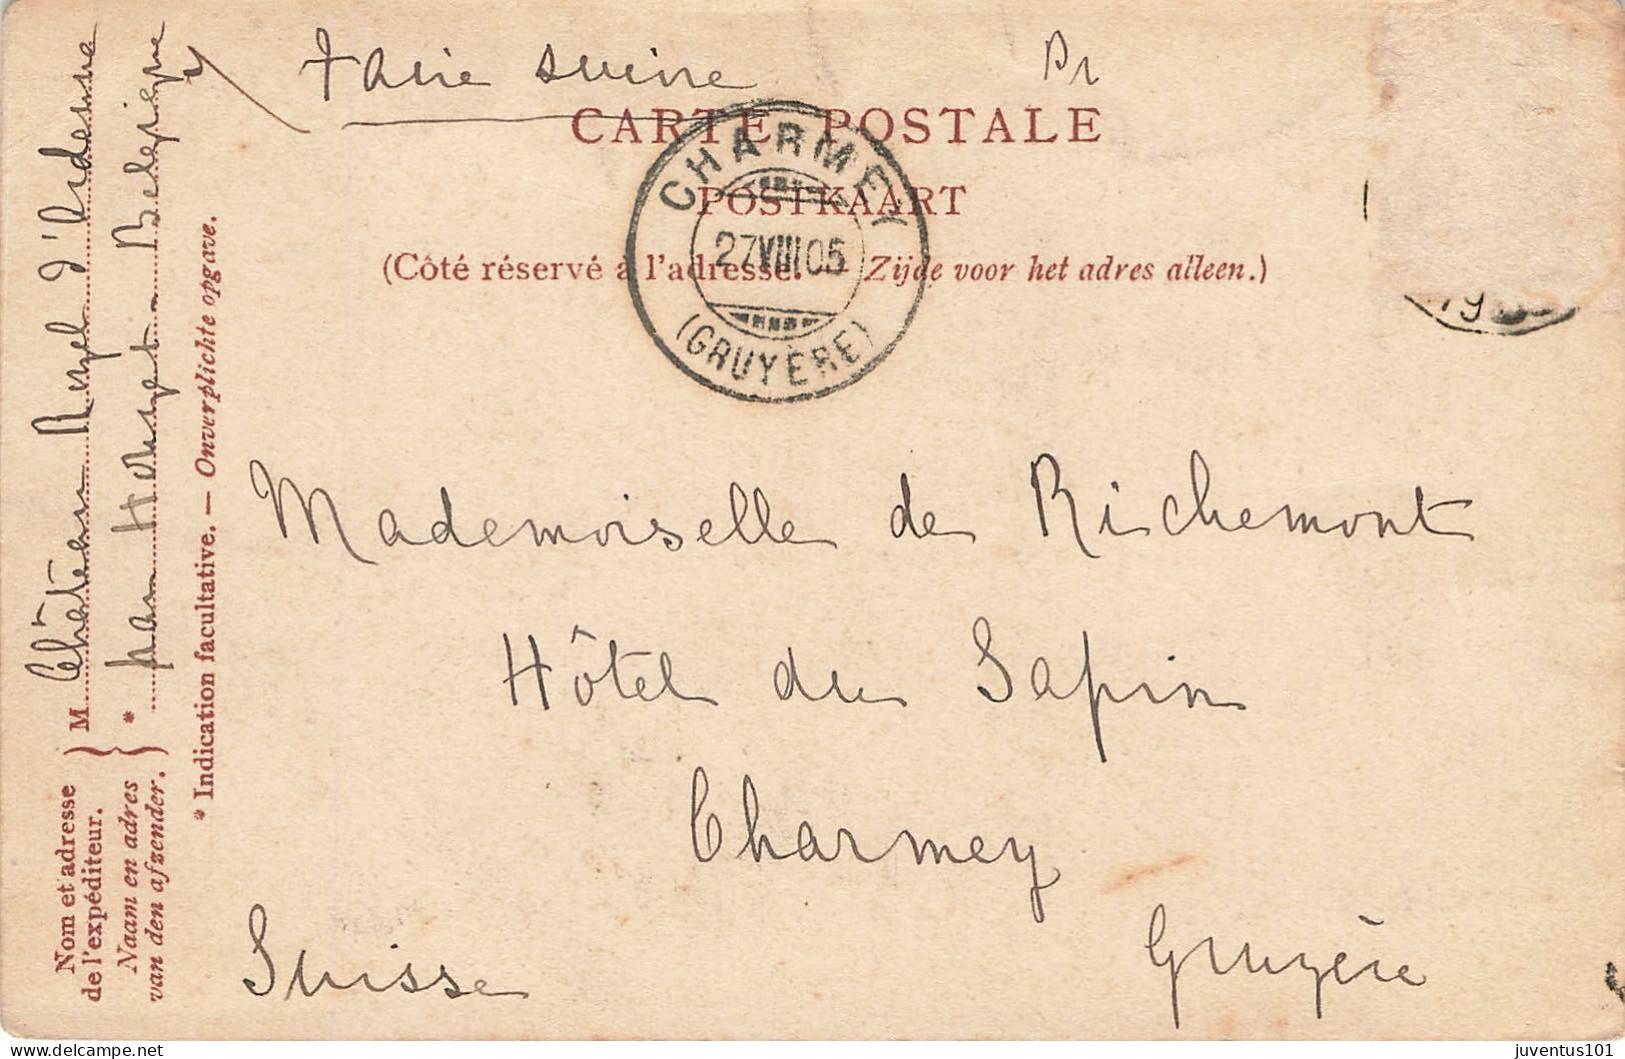 Faire suivre
CARTE POSTALE
POSTKAART
(Côté réservé à l'adresse. Zijde voor het adres alleen.)
CHARMEY
27 VIII 05
(GRUYÈRE)
19
Mademoiselle de Richemont
Hôtel du Sapin
Charmey
Gruyère
Suisse
Nom et adresse
de l'expéditeur.
Naam en adres
van den afzender.
M Château Royal d'Ardenne
* par Houyet Belgique
* Indication facultative. — Onverplichte opgave.
juventus101